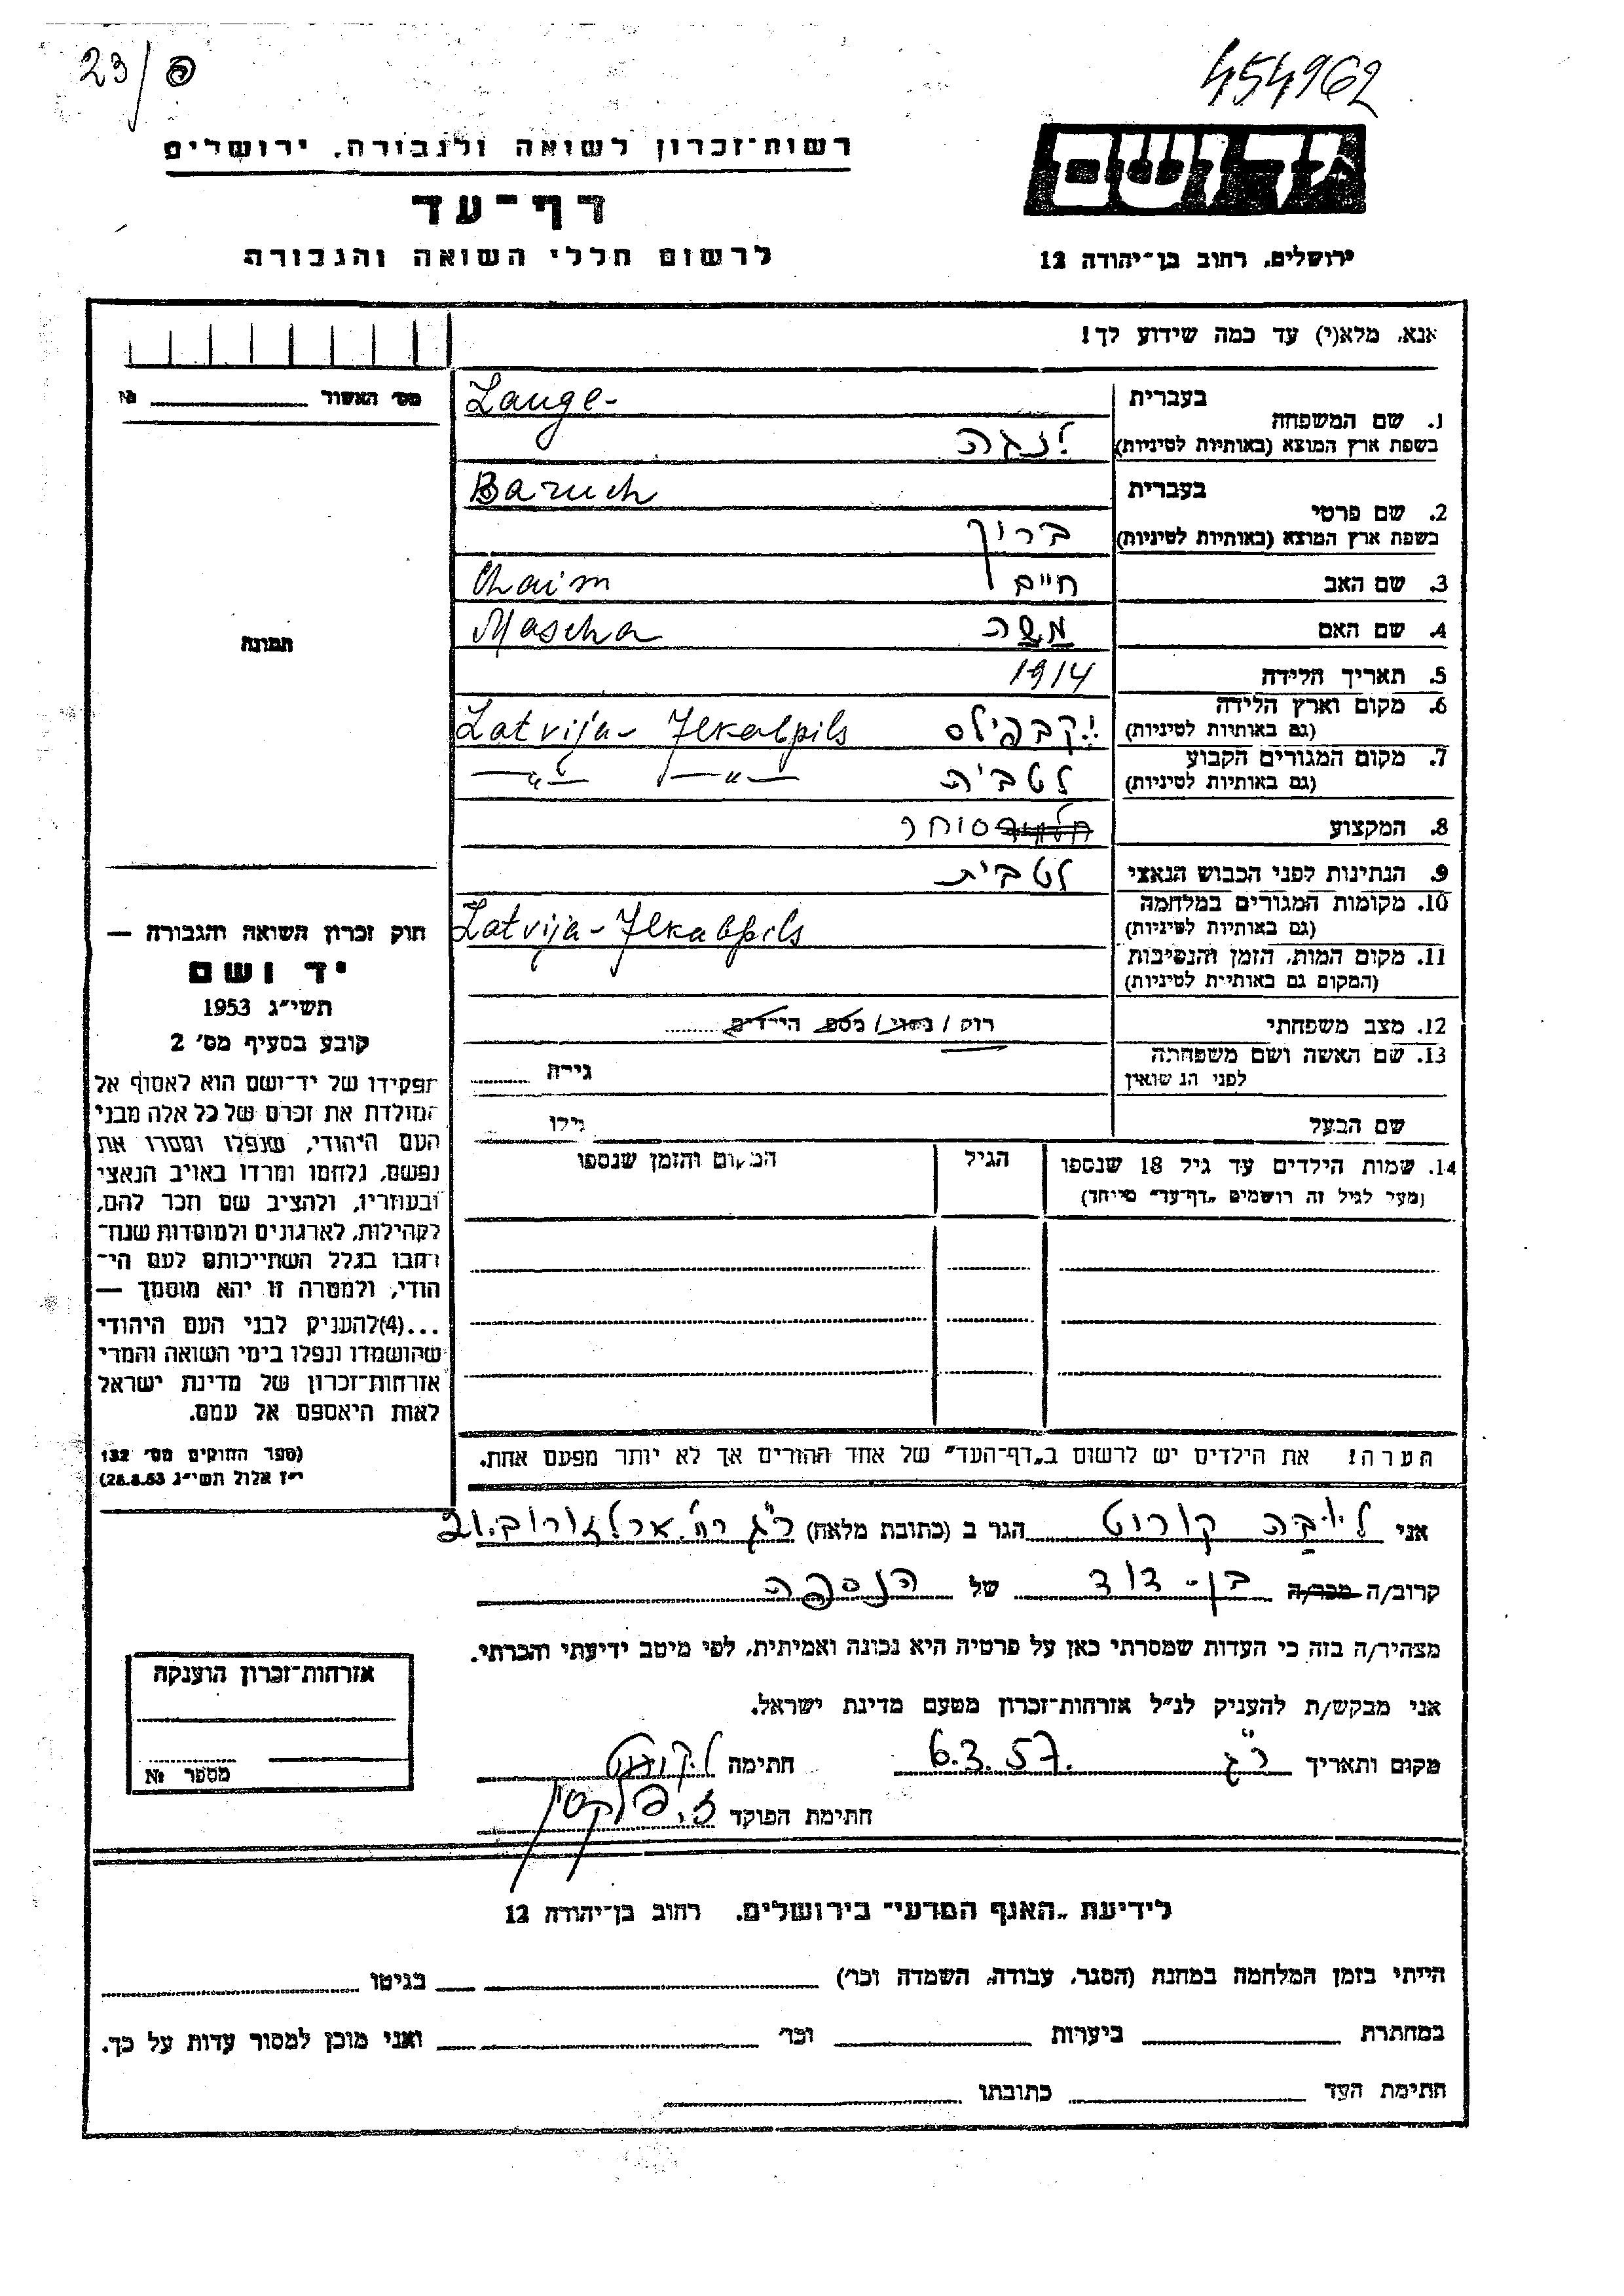 23/פ
454962
רשות־זכרון לשואה ולגבורה, ירושלים
יד ושם
דף־עד
לרשום חללי השואה והגבורה
ירושלים, רחוב בן־יהודה 12
אנא, מלא(י) עד כמה שידוע לך!
מס' האשור №
בעברית
Lange-
1. שם המשפחה
בשפת ארץ המוצא (באותיות לטיניות)
לנגה
בעברית
Baruch
2. שם פרטי
בשפת ארץ המוצא (באותיות לטיניות)
ברוך
3. שם האב חיים Chaim
4. שם האם משה Mascha
תמונה
5. תאריך הלידה 1914
6. מקום וארץ הלידה
(גם באותיות לטיניות)
יקבפילס Latvija- Jekabpils
7. מקום המגורים הקבוע
(גם באותיות לטיניות)
לטביה —"— —"—
8. המקצוע סוחר
9. הנתינות לפני הכבוש הנאצי לטבית
10. מקומות המגורים במלחמה
(גם באותיות לטיניות)
Latvija-Jekabpils
11. מקום המות, הזמן והנסיבות
(המקום גם באותיות לטיניות)
12. מצב משפחתי רוק/נשוי/מספ הילדים
13. שם האשה ושם משפחתה
לפני הנשואין
גילה
שם הבעל גילו
14. שמות הילדים עד גיל 18 שנספו
(מעל לגיל זה רושמים „דף־עד" מיוחד)
הגיל
המקום והזמן שנספו
חוק זכרון השואה והגבורה —
יד ושם
תשי"ג 1953
קובע בסעיף מס' 2
תפקידו של יד־ושם הוא לאסוף אל
המולדת את זכרם של כל אלה מבני
העם היהודי, שנפלו ומסרו את
נפשם, נלחמו ומרדו באויב הנאצי
ובעוזריו, ולהציב שם וזכר להם,
לקהילות, לארגונים ולמוסדות שנח־
רבו בגלל השתייכותם לעם הי־
הודי, ולמטרה זו יהא מוסמך —
...(4)להעניק לבני העם היהודי
שהושמדו ונפלו בימי השואה והמרי
אזרחות־זכרון של מדינת ישראל
לאות היאספם אל עמם.
(ספר החוקים מס' 132
י"ז אלול תשי"ג 28.8.53)
הערה! את הילדים יש לרשום ב„דף־העד" של אחד ההורים אך לא יותר מפעם אחת.
אני ליובה קורט הגר ב (כתובת מלאה) ר"ג רח' ארלוזורוב 21
קרוב/ה מכר/ה בן-דוד של הנספה
מצהיר/ה בזה כי העדות שמסרתי כאן על פרטיה היא נכונה ואמיתית, לפי מיטב ידיעתי והכרתי.
אני מבקש/ת להעניק לנ"ל אזרחות־זכרון מטעם מדינת ישראל.
מקום ותאריך ר"ג 6.3.57. חתימה ל.קורט
חתימת הפוקד
אזרחות־זכרון הוענקה
מספר №
לידיעת „האגף המדעי" בירושלים, רחוב בן־יהודה 12
הייתי בזמן המלחמה במחנה (הסגר, עבודה, השמדה וכו') בגיטו
במחתרת ביערות וכו' ואני מוכן למסור עדות על כך.
חתימת העד כתובתו